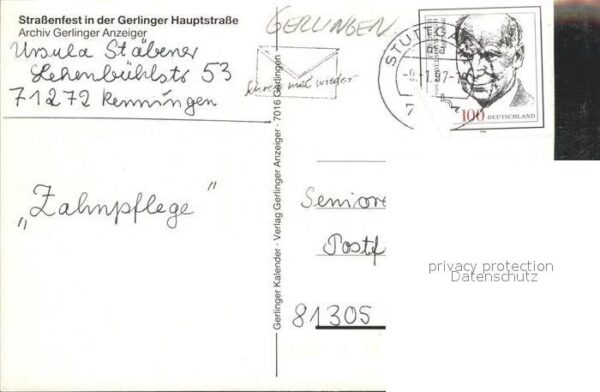 Straßenfest in der Gerlinger Hauptstraße
Archiv Gerlinger Anzeiger
Ursula Stäbener
Lehenbühlstr 53
71272 Renningen
GERLINGEN
mal wieder
STUTTGA
100 DEUTSCHLAND
Gerlinger Kalender · Verlag Gerlinger Anzeiger · 7016 Gerlingen
„Zahnpflege"
Seniore
Postf
81305
privacy protection
www.